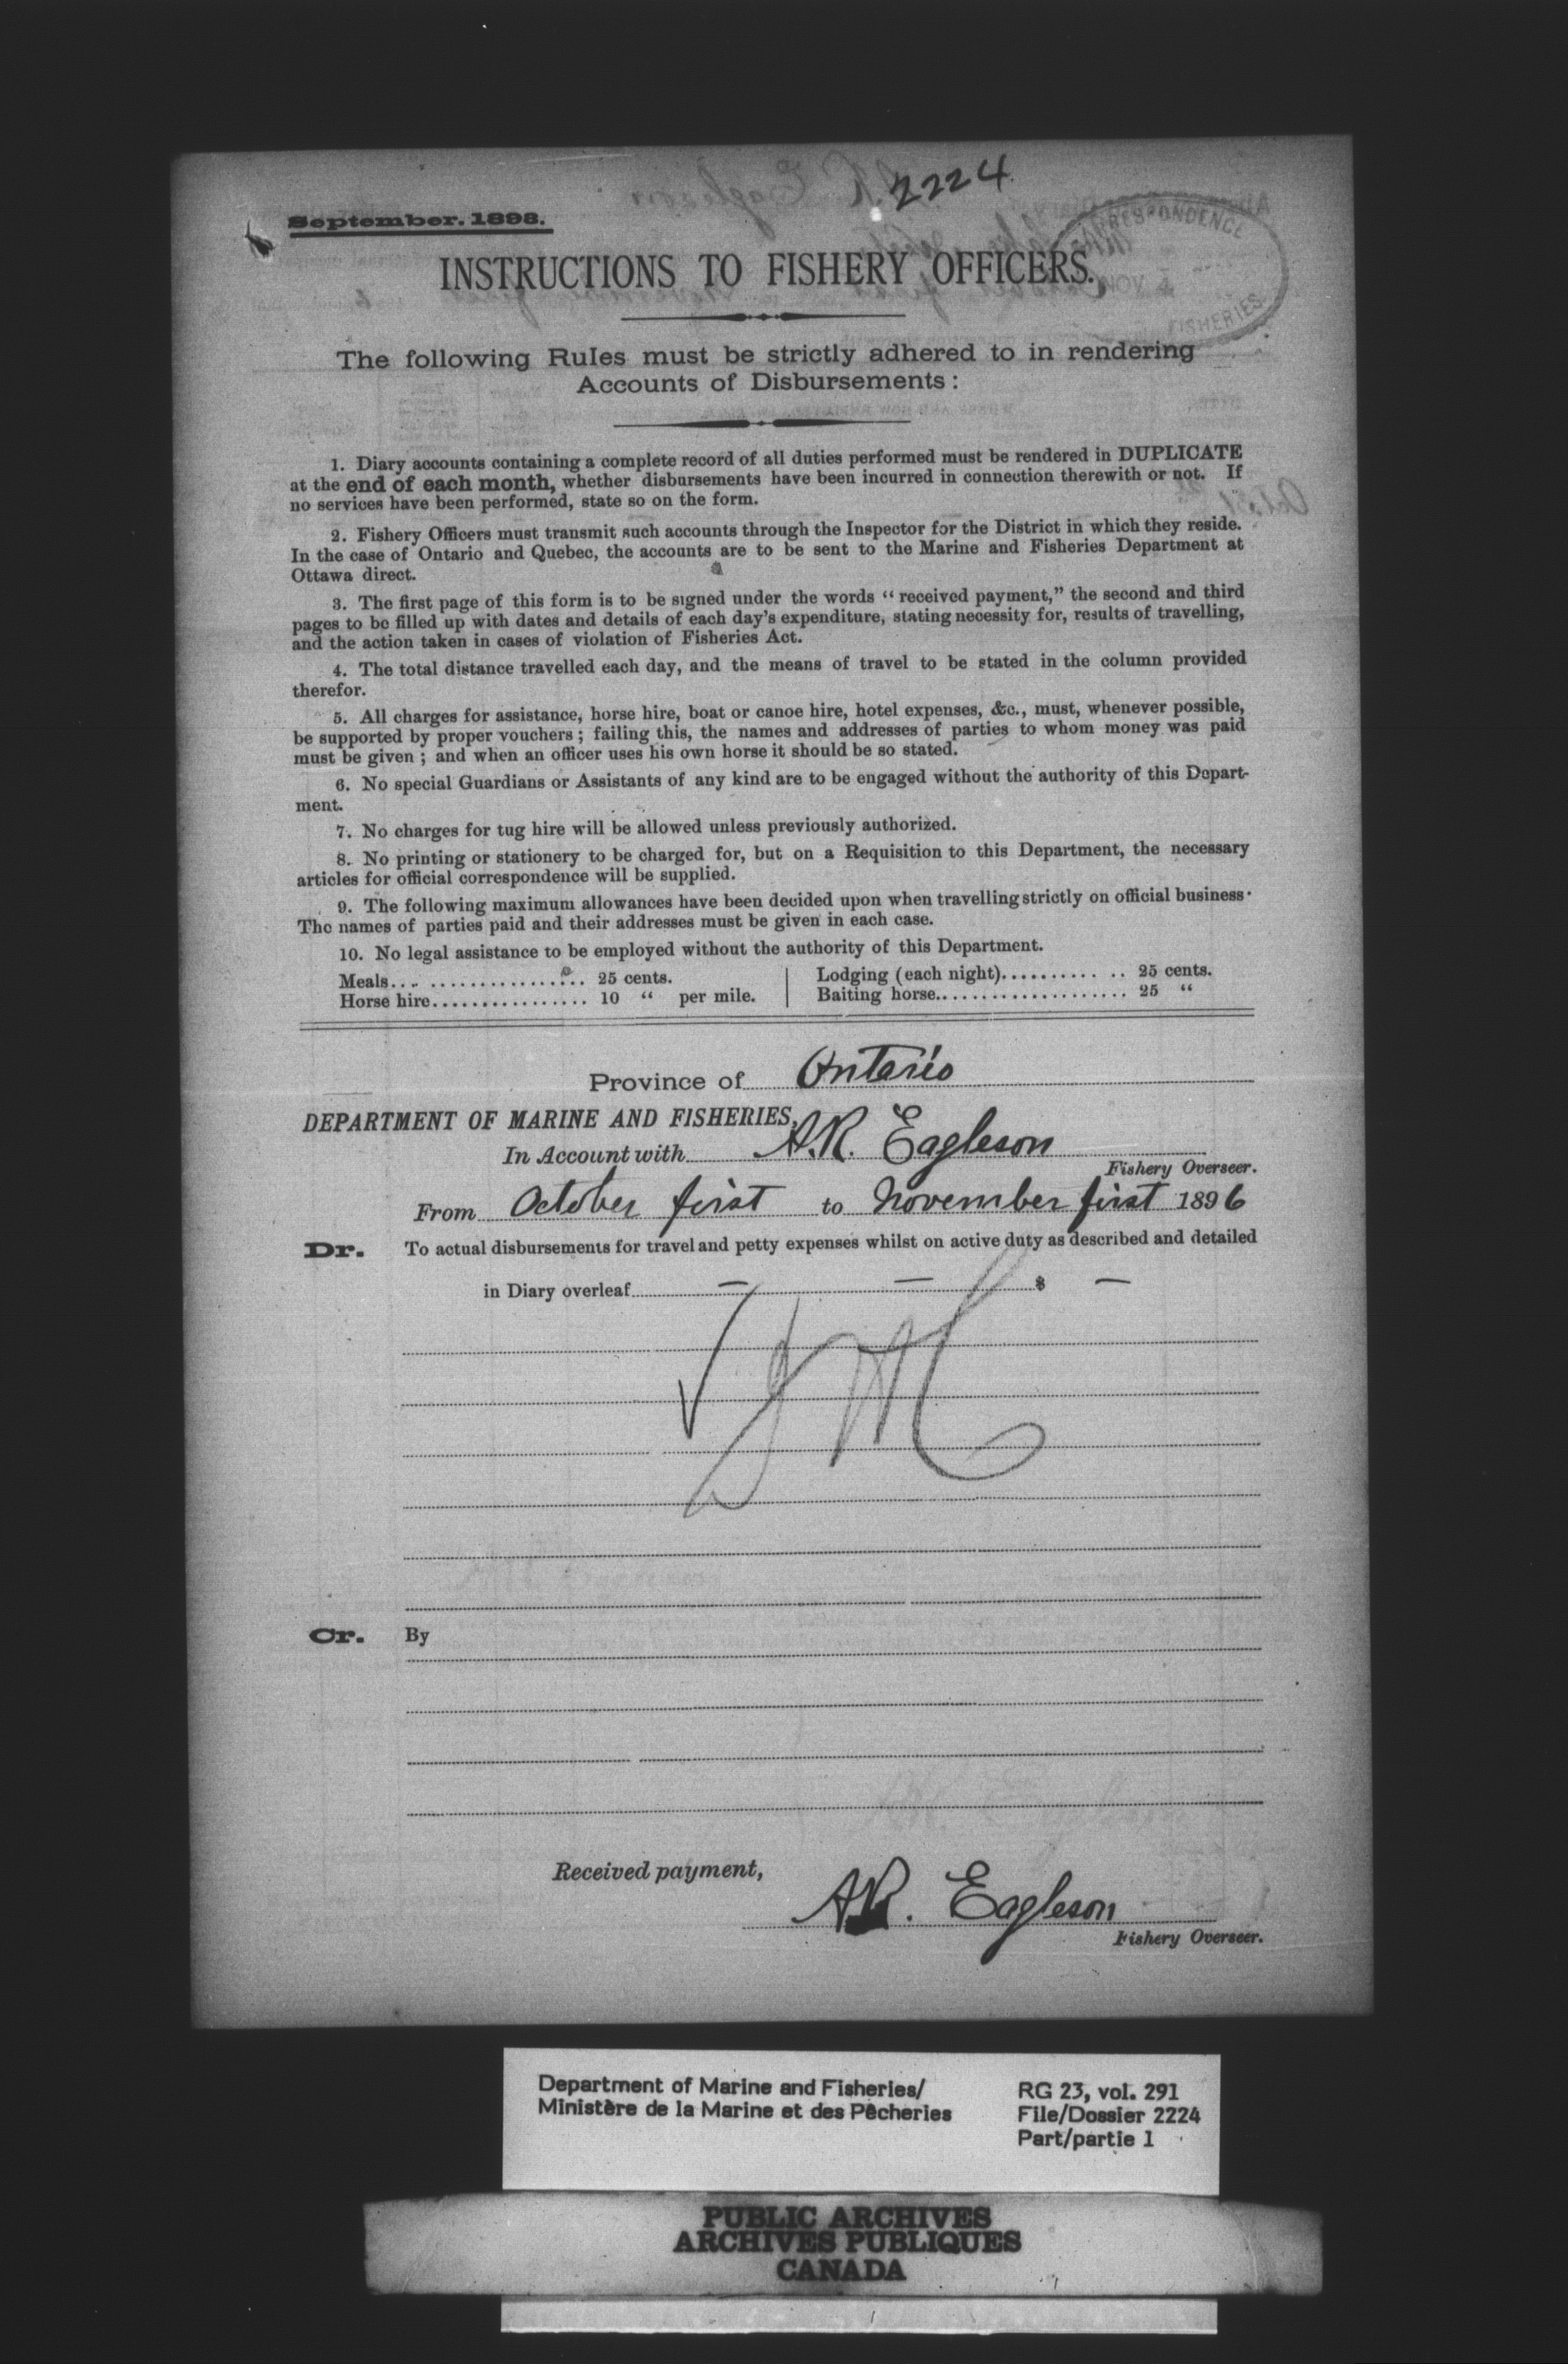 2224
September. 1893.
CORRESPONDENCE
NOV 4
FISHERIES
INSTRUCTIONS TO FISHERY OFFICERS.
The following Rules must be strictly adhered to in rendering
Accounts of Disbursements :
1. Diary accounts containing a complete record of all duties performed must be rendered in DUPLICATE
at the end of each month, whether disbursements have been incurred in connection therewith or not. If
no services have been performed, state so on the form.
2. Fishery Officers must transmit such accounts through the Inspector for the District in which they reside.
In the case of Ontario and Quebec, the accounts are to be sent to the Marine and Fisheries Department at
Ottawa direct.
3. The first page of this form is to be signed under the words “ received payment,” the second and third
pages to be filled up with dates and details of each day's expenditure, stating necessity for, results of travelling,
and the action taken in cases of violation of Fisheries Act.
4. The total distance travelled each day, and the means of travel to be stated in the column provided
therefor.
5. All charges for assistance, horse hire, boat or canoe hire, hotel expenses, &c., must, whenever possible,
be supported by proper vouchers ; failing this, the names and addresses of parties to whom money was paid
must be given ; and when an officer uses his own horse it should be so stated.
6. No special Guardians or Assistants of any kind are to be engaged without the authority of this Depart-
ment.
7. No charges for tug hire will be allowed unless previously authorized.
8. No printing or stationery to be charged for, but on a Requisition to this Department, the necessary
articles for official correspondence will be supplied.
9. The following maximum allowances have been decided upon when travelling strictly on official business.
The names of parties paid and their addresses must be given in each case.
10. No legal assistance to be employed without the authority of this Department.
Meals.................... 25 cents. Lodging (each night)............ 25 cents.
Horse hire................ 10 “ per mile. Baiting horse.................... 25 “
Province of Ontario
DEPARTMENT OF MARINE AND FISHERIES,
In Account with A.R. Eagleson
Fishery Overseer.
From October first to November first 1896
Dr. To actual disbursements for travel and petty expenses whilst on active duty as described and detailed
in Diary overleaf — — $ —
Cr. By
Received payment,
A.R. Eagleson
Fishery Overseer.
Department of Marine and Fisheries/ RG 23, vol. 291
Ministère de la Marine et des Pêcheries File/Dossier 2224
Part/partie 1
PUBLIC ARCHIVES
ARCHIVES PUBLIQUES
CANADA